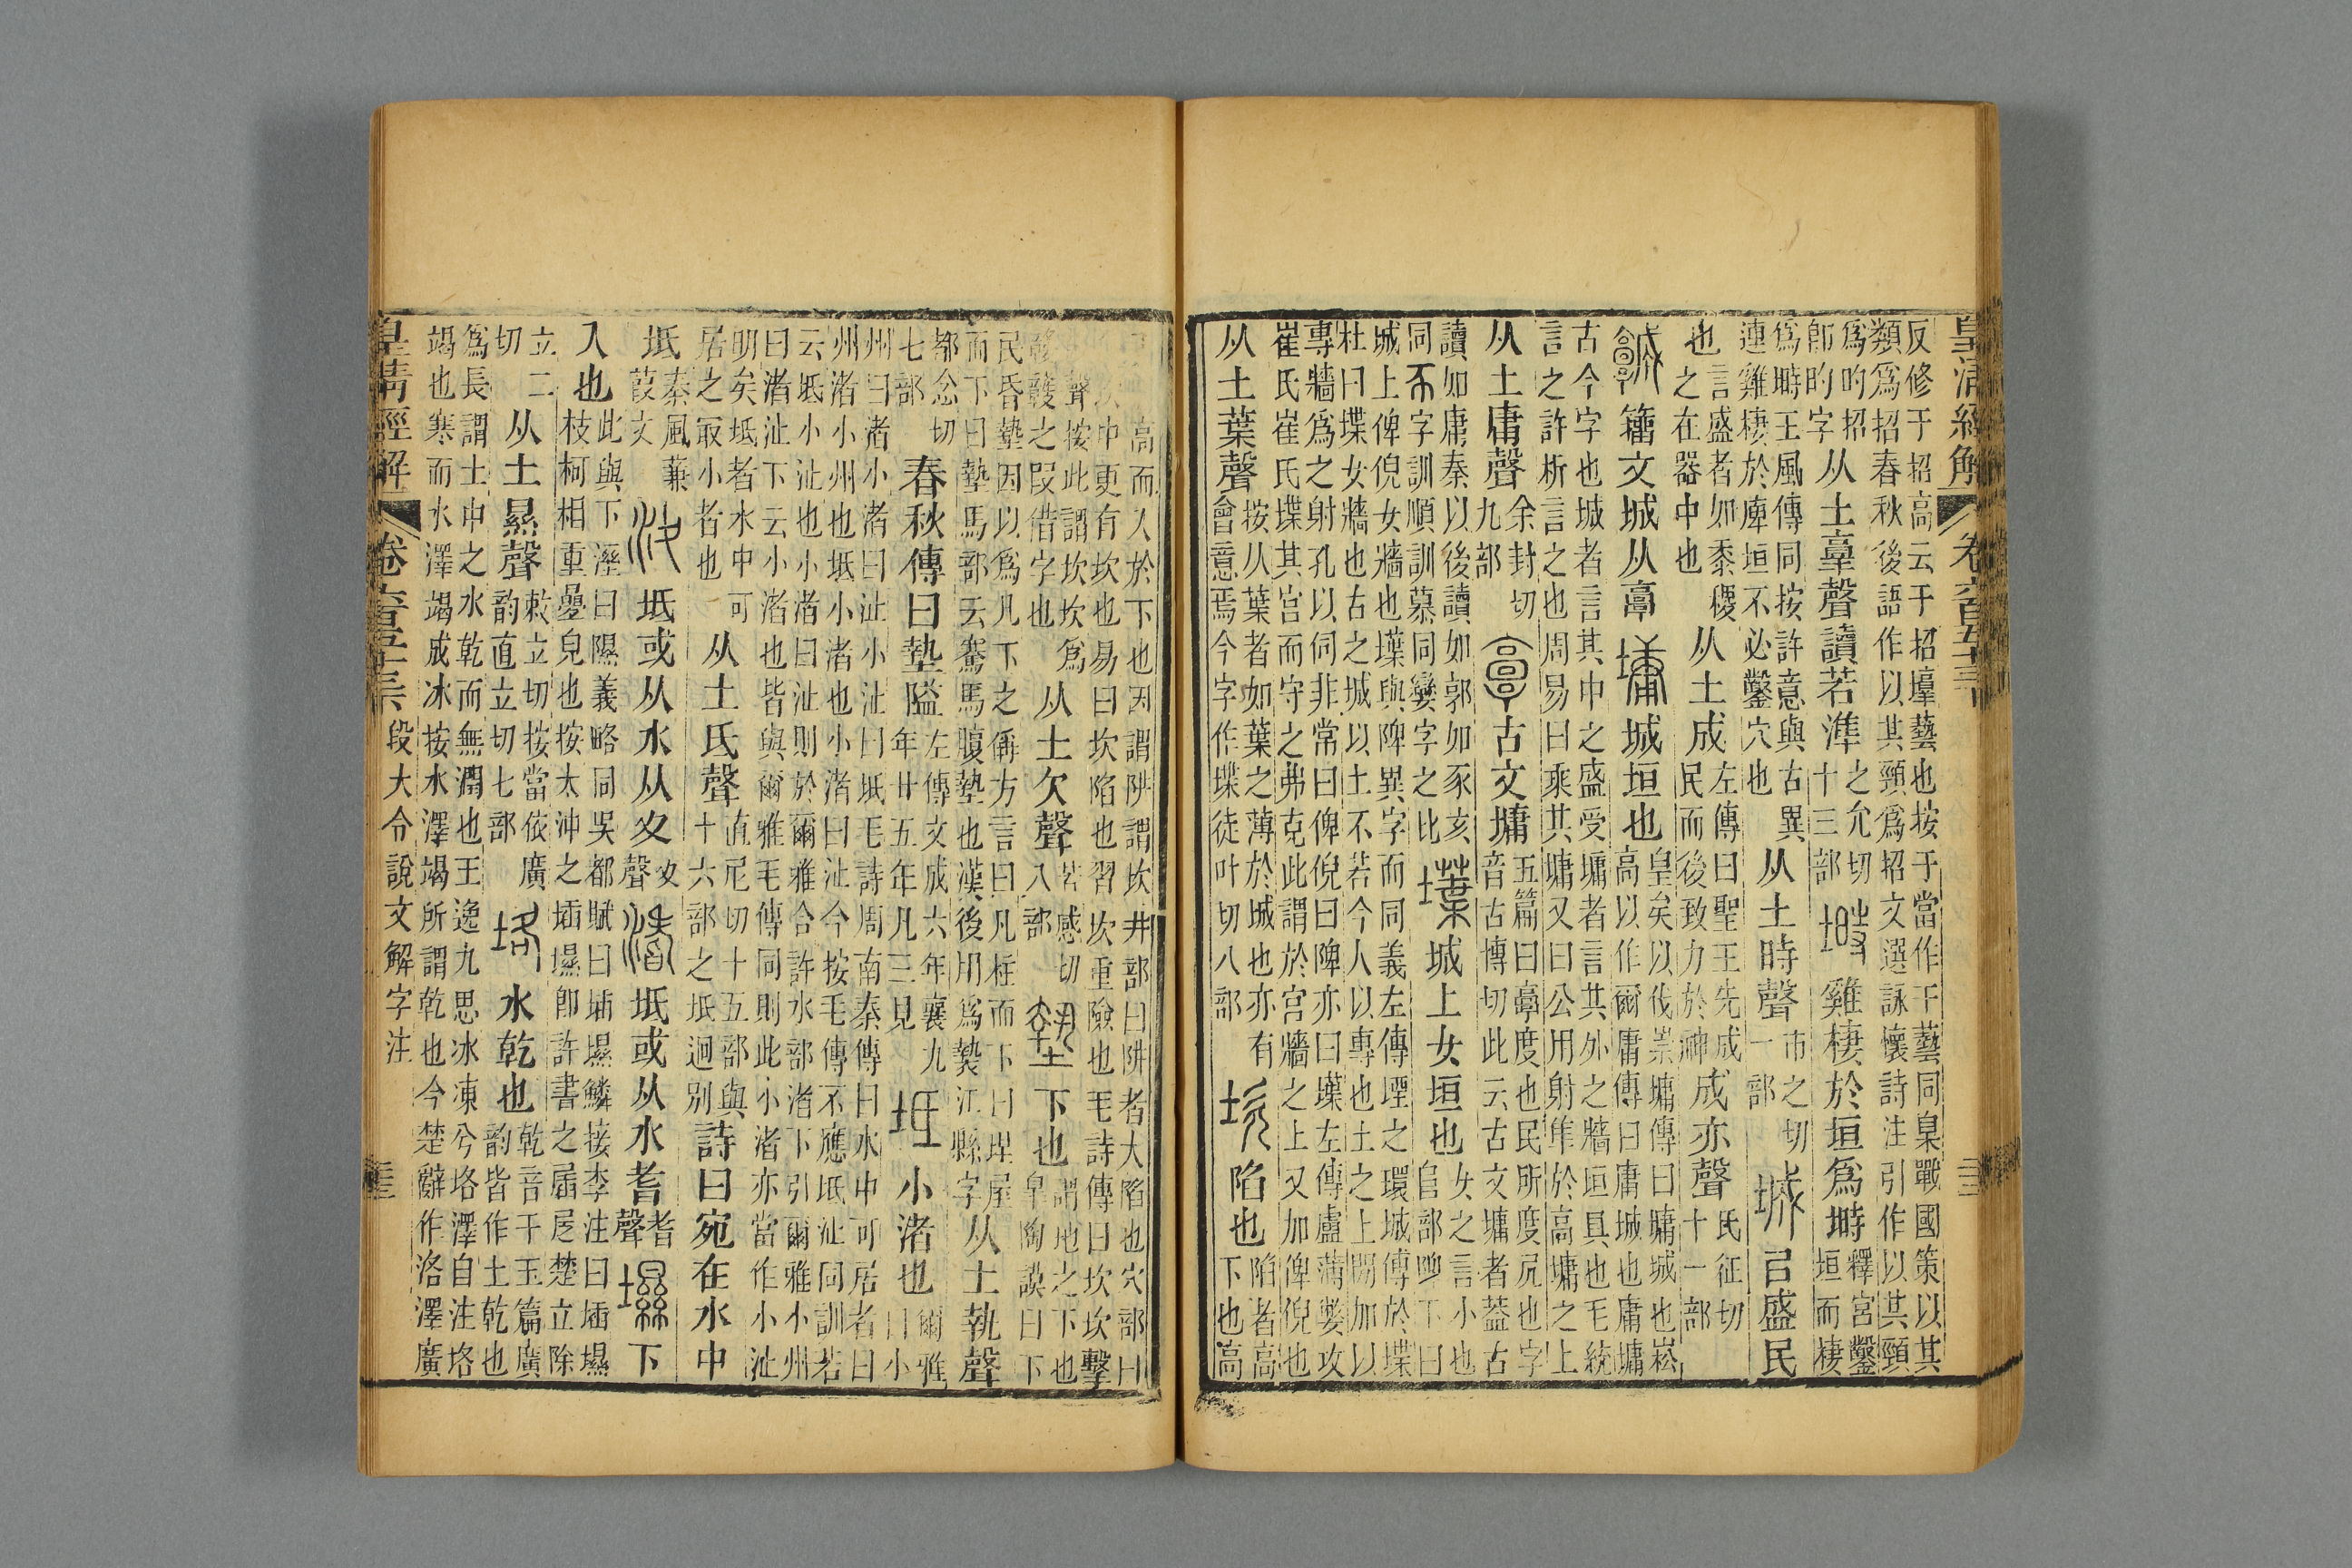 皇清經解
卷六百五十三
三
反修于招高云于招㙵藝也按于當作干藝同臬戰國策以其
類爲招春秋後語作以其頸爲招文選詠懷詩注引作以其頸
爲旳招
卽旳字
从土𦎧聲讀若準
之允切
十三部
塒
雞棲於垣爲塒
釋宮鑿
垣而棲
爲塒王風傳同按許意與古異
連雞棲於庳垣不必鑿穴也
从土時聲
市之切
一部
城
㠯盛民
也
言盛者如黍稷
之在器中也
从土成
左傳曰聖王先成
民而後致力於神
成亦聲
氏征切
十一部
𩫨
籒文城从𩫖
墉
城垣也
皇矣以伐崇墉傳曰墉城也崧
高以作爾庸傳曰庸城也庸墉
古今字也城者言其中之盛受墉者言其外之牆垣具也毛統
言之許析言之也周易曰乘其墉又曰公用射隼於高墉之上
从土庸聲
余封切
九部
𩫖
古文墉
五篇曰𩫖度也民所度凥也字
音古博切此云古文墉者葢古
讀如庸秦以後讀如郭如豕亥
同而字訓順訓慕同孌字之比
㙪
城上女垣也
女之言小也
𨸏部陴下曰
城上俾倪女牆也㙪與陴異字而同義左傳堙之環城傅於堞
杜曰堞女牆也古之城以土不若今人以專也土之上閒加以
專牆爲之射孔以伺非常曰俾倪曰陴亦曰㙪左傳盧蒲嫳攻
崔氏崔氏堞其宫而守之弗克此謂於宫牆之上又加俾倪也
从土葉聲
按从葉者如葉之薄於城也亦有
會意焉今字作堞徒叶切八部
坎
陷也
陷者高
下也高
高而入於下也因謂阱謂坎井部曰阱者大陷也穴部曰
中更有坎也易曰坎陷也習坎重險也毛詩傳曰坎坎擊
聲按此謂坎坎爲
䜱䜱之叚借字也
从土欠聲
苦感切
八部
墊
下也
謂地之下也
皐陶謨曰下
民昏墊因以爲凡下之偁方言曰凡柱而下曰埕屋
而下曰墊馬部云騺馬腹墊也漢後用爲褺江縣字
从土執聲
都念切
七部
春秋傳曰墊隘
左傳文成六年襄九
年廿五年凡三見
坻
小渚也
爾雅
曰小
州曰渚小渚曰沚小沚曰坻毛詩周南秦傳曰水中可居者曰
州渚小州也坻小渚也小渚曰沚今按毛傳不應坻沚同訓若
云坻小沚也小渚曰沚則於爾雅合許水部渚下引爾雅小州
曰渚沚下云小渚也皆與爾雅毛傳同則此小渚亦當作小沚
明矣坻者水中可
居之冣小者也
从土氏聲
直尼切十五部與
十六部之坁迥别
詩曰宛在水中
坻
秦風蒹
葭文
汷
坻或从水从夂
夂
聲
渚
坻或从水耆
耆
聲
㙷
下
入也
此與下溼曰隰義略同吳都賦曰㙮㙷鱗接李注曰㙮㙷
枝柯相重曡皃也按太沖之㙮㙷卽許書之屟𡰪楚立除
立二
切
从土㬎聲
敕立切按當依廣
韵直立切七部
垎
水乾也
乾音干玉篇廣
韵皆作土乾也
爲長謂土中之水乾而無潤也王逸九思冰凍兮垎澤自注垎
竭也寒而水澤竭成冰按水澤竭所謂乾也今楚辭作洛澤廣
皇清經解
卷六百五十三
段大令說文解字注